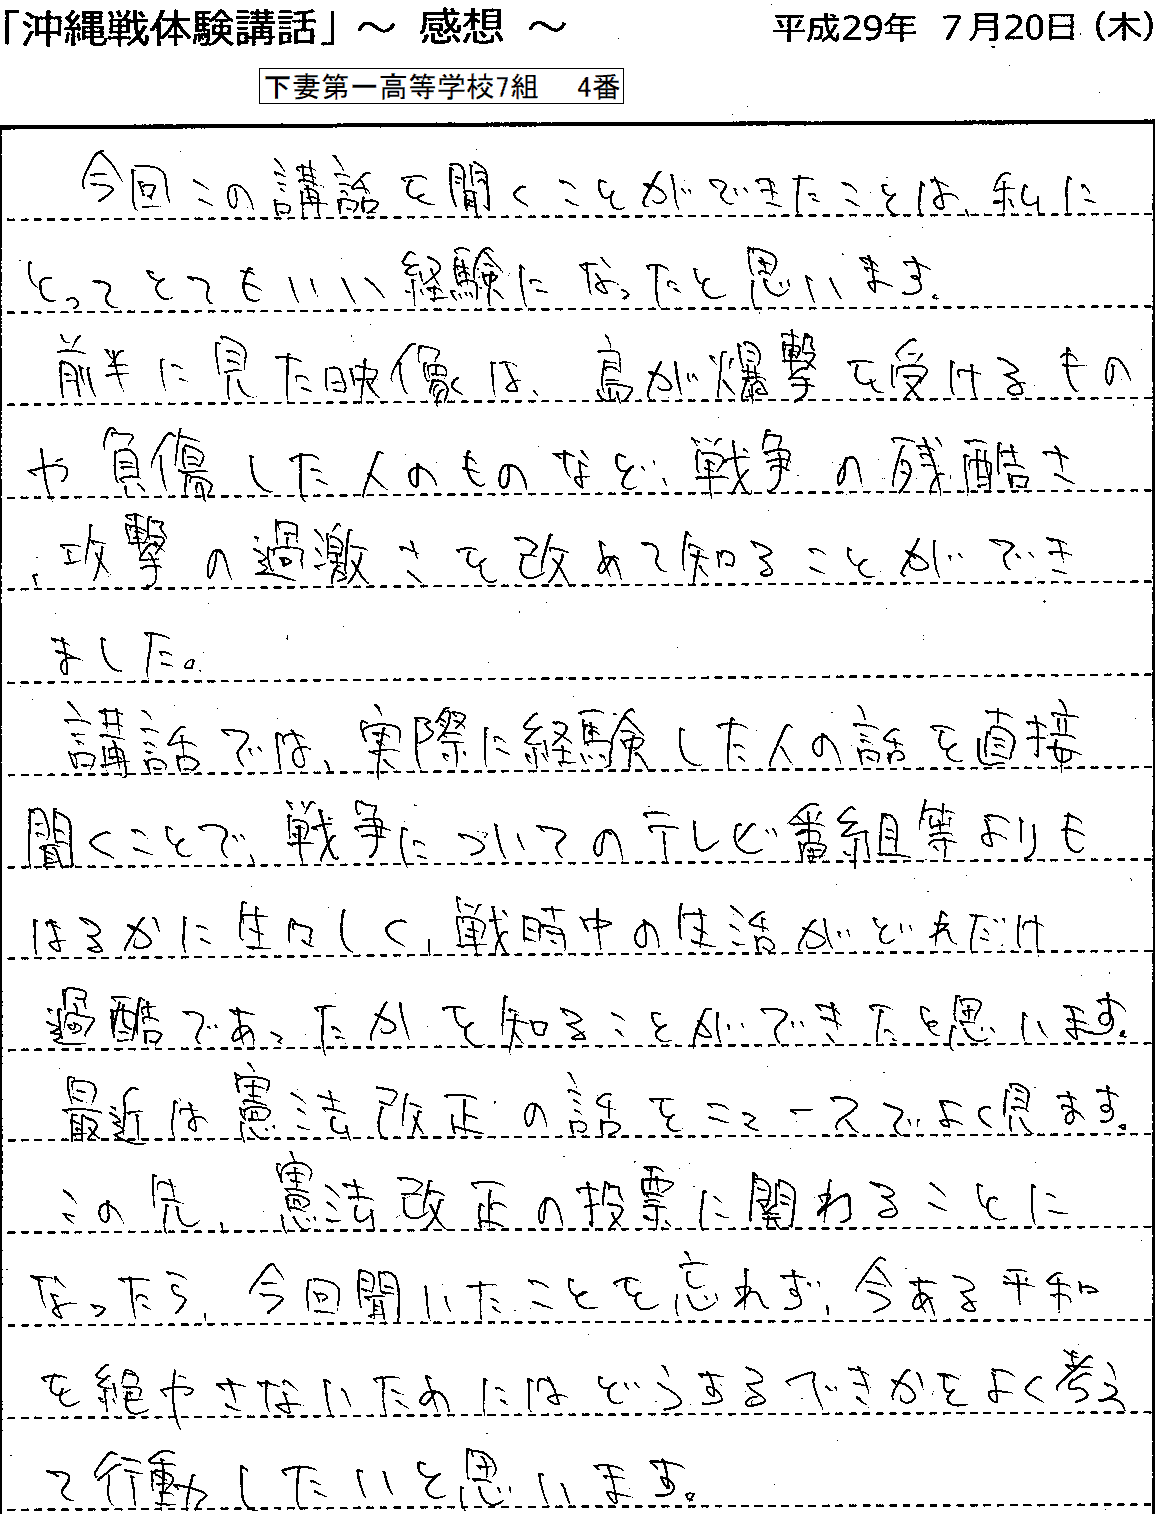 「沖縄戦体験講話」～ 感想 ～ 平成29年 7月20日（木）
下妻第一高等学校7組 4番
今回この講話を聞くことができたことは、私に
とってとてもいい経験になったと思います。
前半に見た映像は、島が爆撃を受けるもの
や負傷した人のものなど、戦争の残酷さ
、攻撃の過激さを改めて知ることができ
ました。
講話では、実際に経験した人の話を直接
聞くことで、戦争についてのテレビ番組等よりも
はるかに生々しく、戦時中の生活がどれだけ
過酷であったかを知ることができたと思います。
最近は憲法改正の話をニュースでよく見ます。
この先、憲法改正の投票に関わることに
なったら、今回聞いたことを忘れず、今ある平和
を絶やさないためにはどうするできかをよく考え
て行動したいと思います。